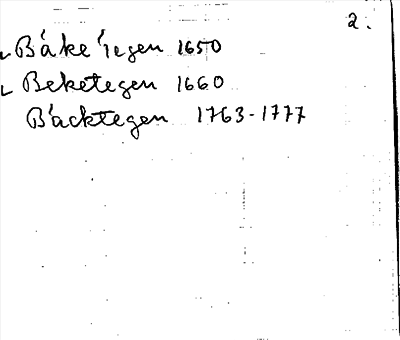 2.
Båke'iegen 1650
Beketegen 1660
Bäcktegen 1763-1777